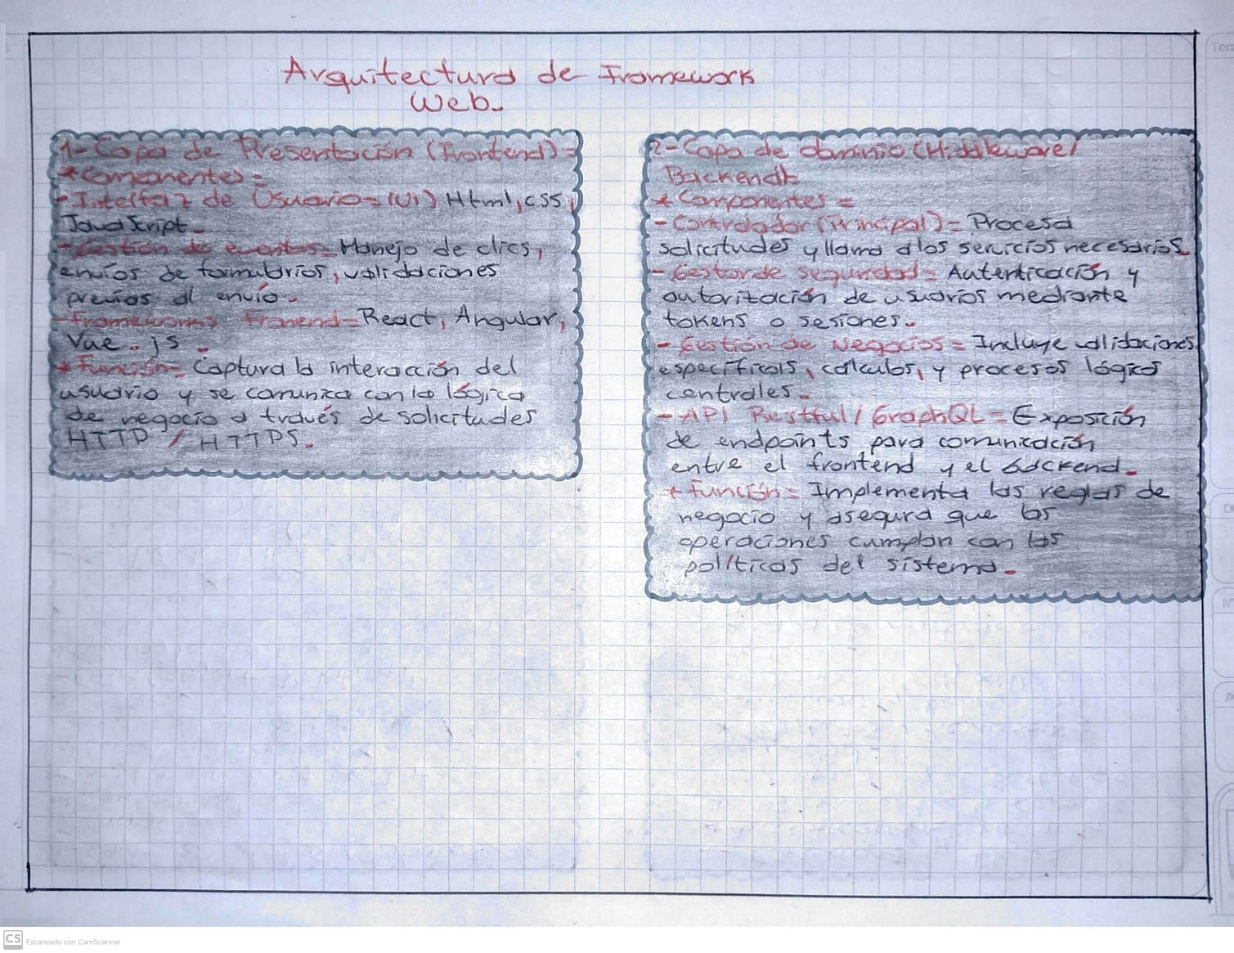 Arquitectura de Framework
Web.
1- Capa de Presentación (Frontend)=
*Componentes=
- Interfaz de Usuario=(UI) Html, css,
JavaScript.
- Gestión de eventos= Manejo de clics,
envíos de formularios, validaciones
previas al envío.
- Frameworks Fronend= React, Angular,
Vue.js.
* Función= Captura la interacción del
usuario y se comunica con la lógica
de negocio a través de solicitudes
HTTP / HTTPS.
2- Capa de dominio (Middleware/
Backend)=
* Componentes=
- Controlador (Principal)= Procesa
solicitudes y llama a los servicios necesarios.
- Gestor de seguridad= Autenticación y
autorización de usuarios mediante
tokens o sesiones.
- Gestión de Negocios= Incluye validaciones
específicas, cálculos, y procesos lógicos
centrales.
- API Restful / GraphQL= Exposición
de endpoints para comunicación
entre el frontend y el backend.
* Función= Implementa las reglas de
negocio y asegura que las
operaciones cumplan con las
políticas del sistema.
CS Escaneado con CamScanner